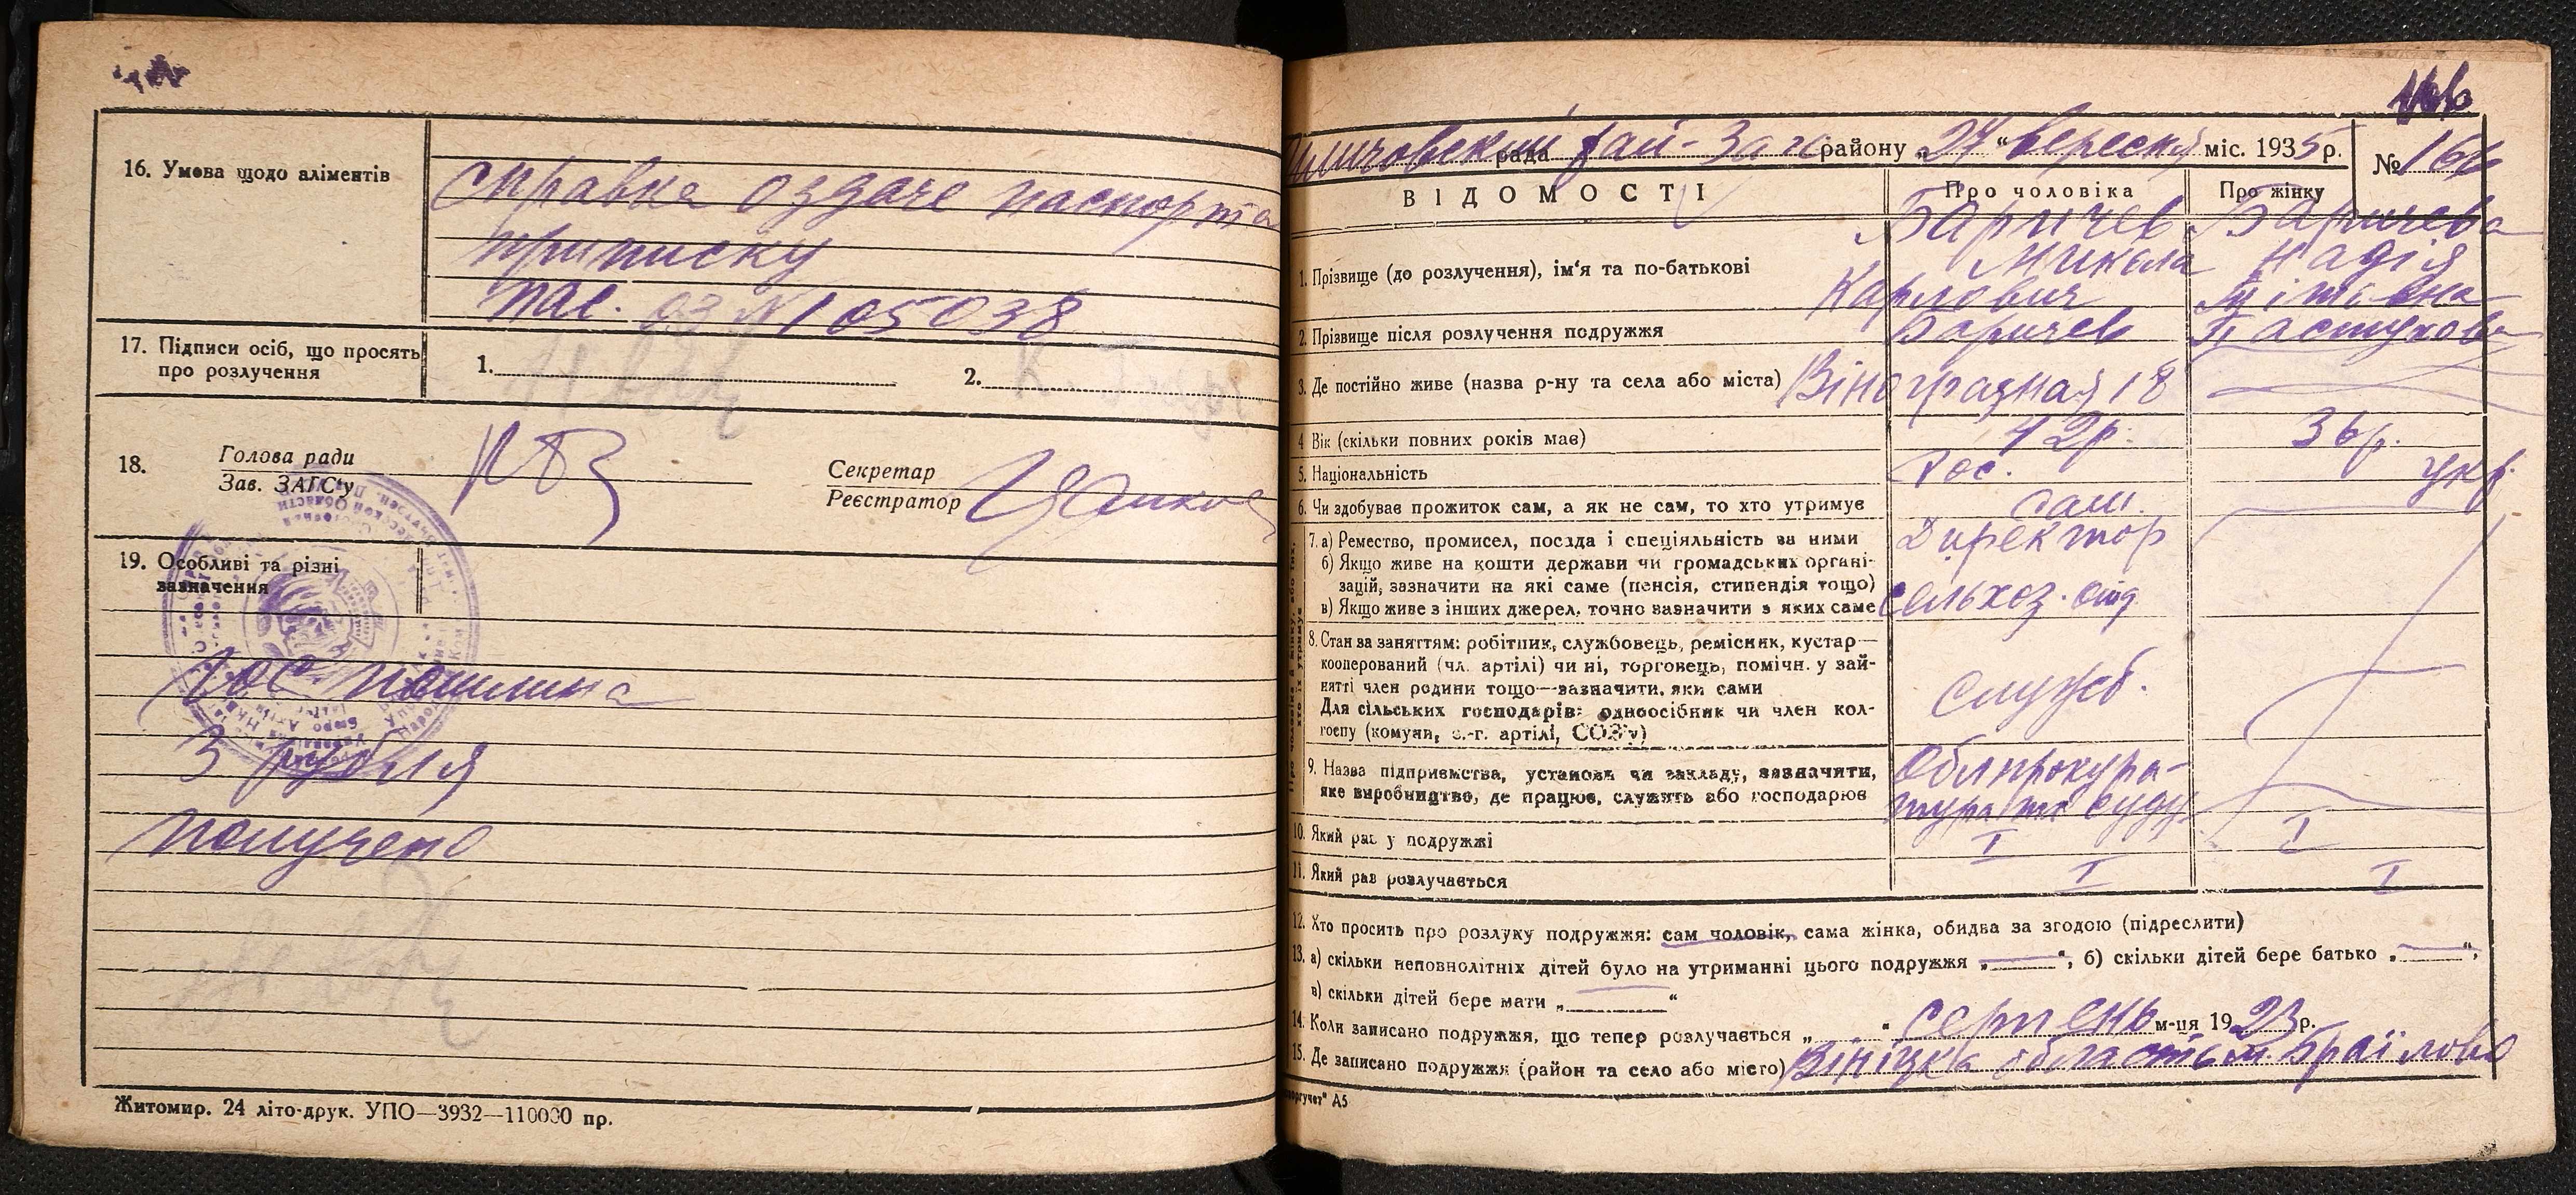 16. Умова щодо аліментів
справка оздаче паспорта
приписку
пас. 03 N 105038
17. Підписи осіб, що просять
про розлучення
1.
2.
18.
Голова ради
Зав. ЗАГС'у
Секретар
Реєстратор
19. Особливі та різні
зазначення
Гос. пошлина
3 рубля
получено
Житомир. 24 літо-друк. УПО—3932—110000 пр.
рада рай-Загс району „27“ вересня міс. 1935 р.
№ 166
ВІДОМОСТІ
Про чоловіка
Про жінку
1. Прізвище (до розлучення), ім'я та по-батькові
Баричев
Микола
Карлович
Баричева
Надія
Тітовна
2. Прізвище після розлучення подружжя
Баричев
Пастухова
3. Де постійно живе (назва р-ну та села або міста)
Віноградная 18
4 Вік (скільки повних років має)
42р.
36р.
5. Національність
Рос.
укр.
6. Чи здобуває прожиток сам, а як не сам, то хто утримує
сам.
7. а) Ремество, промисел, посада і спеціяльність за ними
б) Якщо живе на кошти держави чи громадських органі-
зацій, зазначити на які саме (пенсія, стипендія тощо)
в) Якщо живе з інших джерел, точно зазначити з яких саме
Директор
сельхоз.
8. Стан за заняттям: робітник, службовець, ремісник, кустар—
кооперований (чл. артілі) чи ні, торговець, помічн. у зай-
нятті член родини тощо—зазначити, яки сами
Для сільських господарів: одноосібник чи член кол-
госпу (комуни, с.-г. артілі, СОЗ'у)
служб.
9. Назва підприємства, установи чи закладу, зазначити,
яке виробництво, де працює, служить або господарює
Облпрокура-
тура та суду
10. Який раз у подружжі
I
I
11. Який раз розлучається
I
I
12. Хто просить про розлуку подружжя: сам чоловік, сама жінка, обидва за згодою (підреслити)
13. а) скільки неповнолітніх дітей було на утриманні цього подружжя „—“, б) скільки дітей бере батько „—“,
в) скільки дітей бере мати „—“
14. Коли записано подружжя, що тепер розлучається „ “ серпень м-ця 1923 р.
15. Де записано подружжя (район та село або місто) Вініцка область м. Браілово